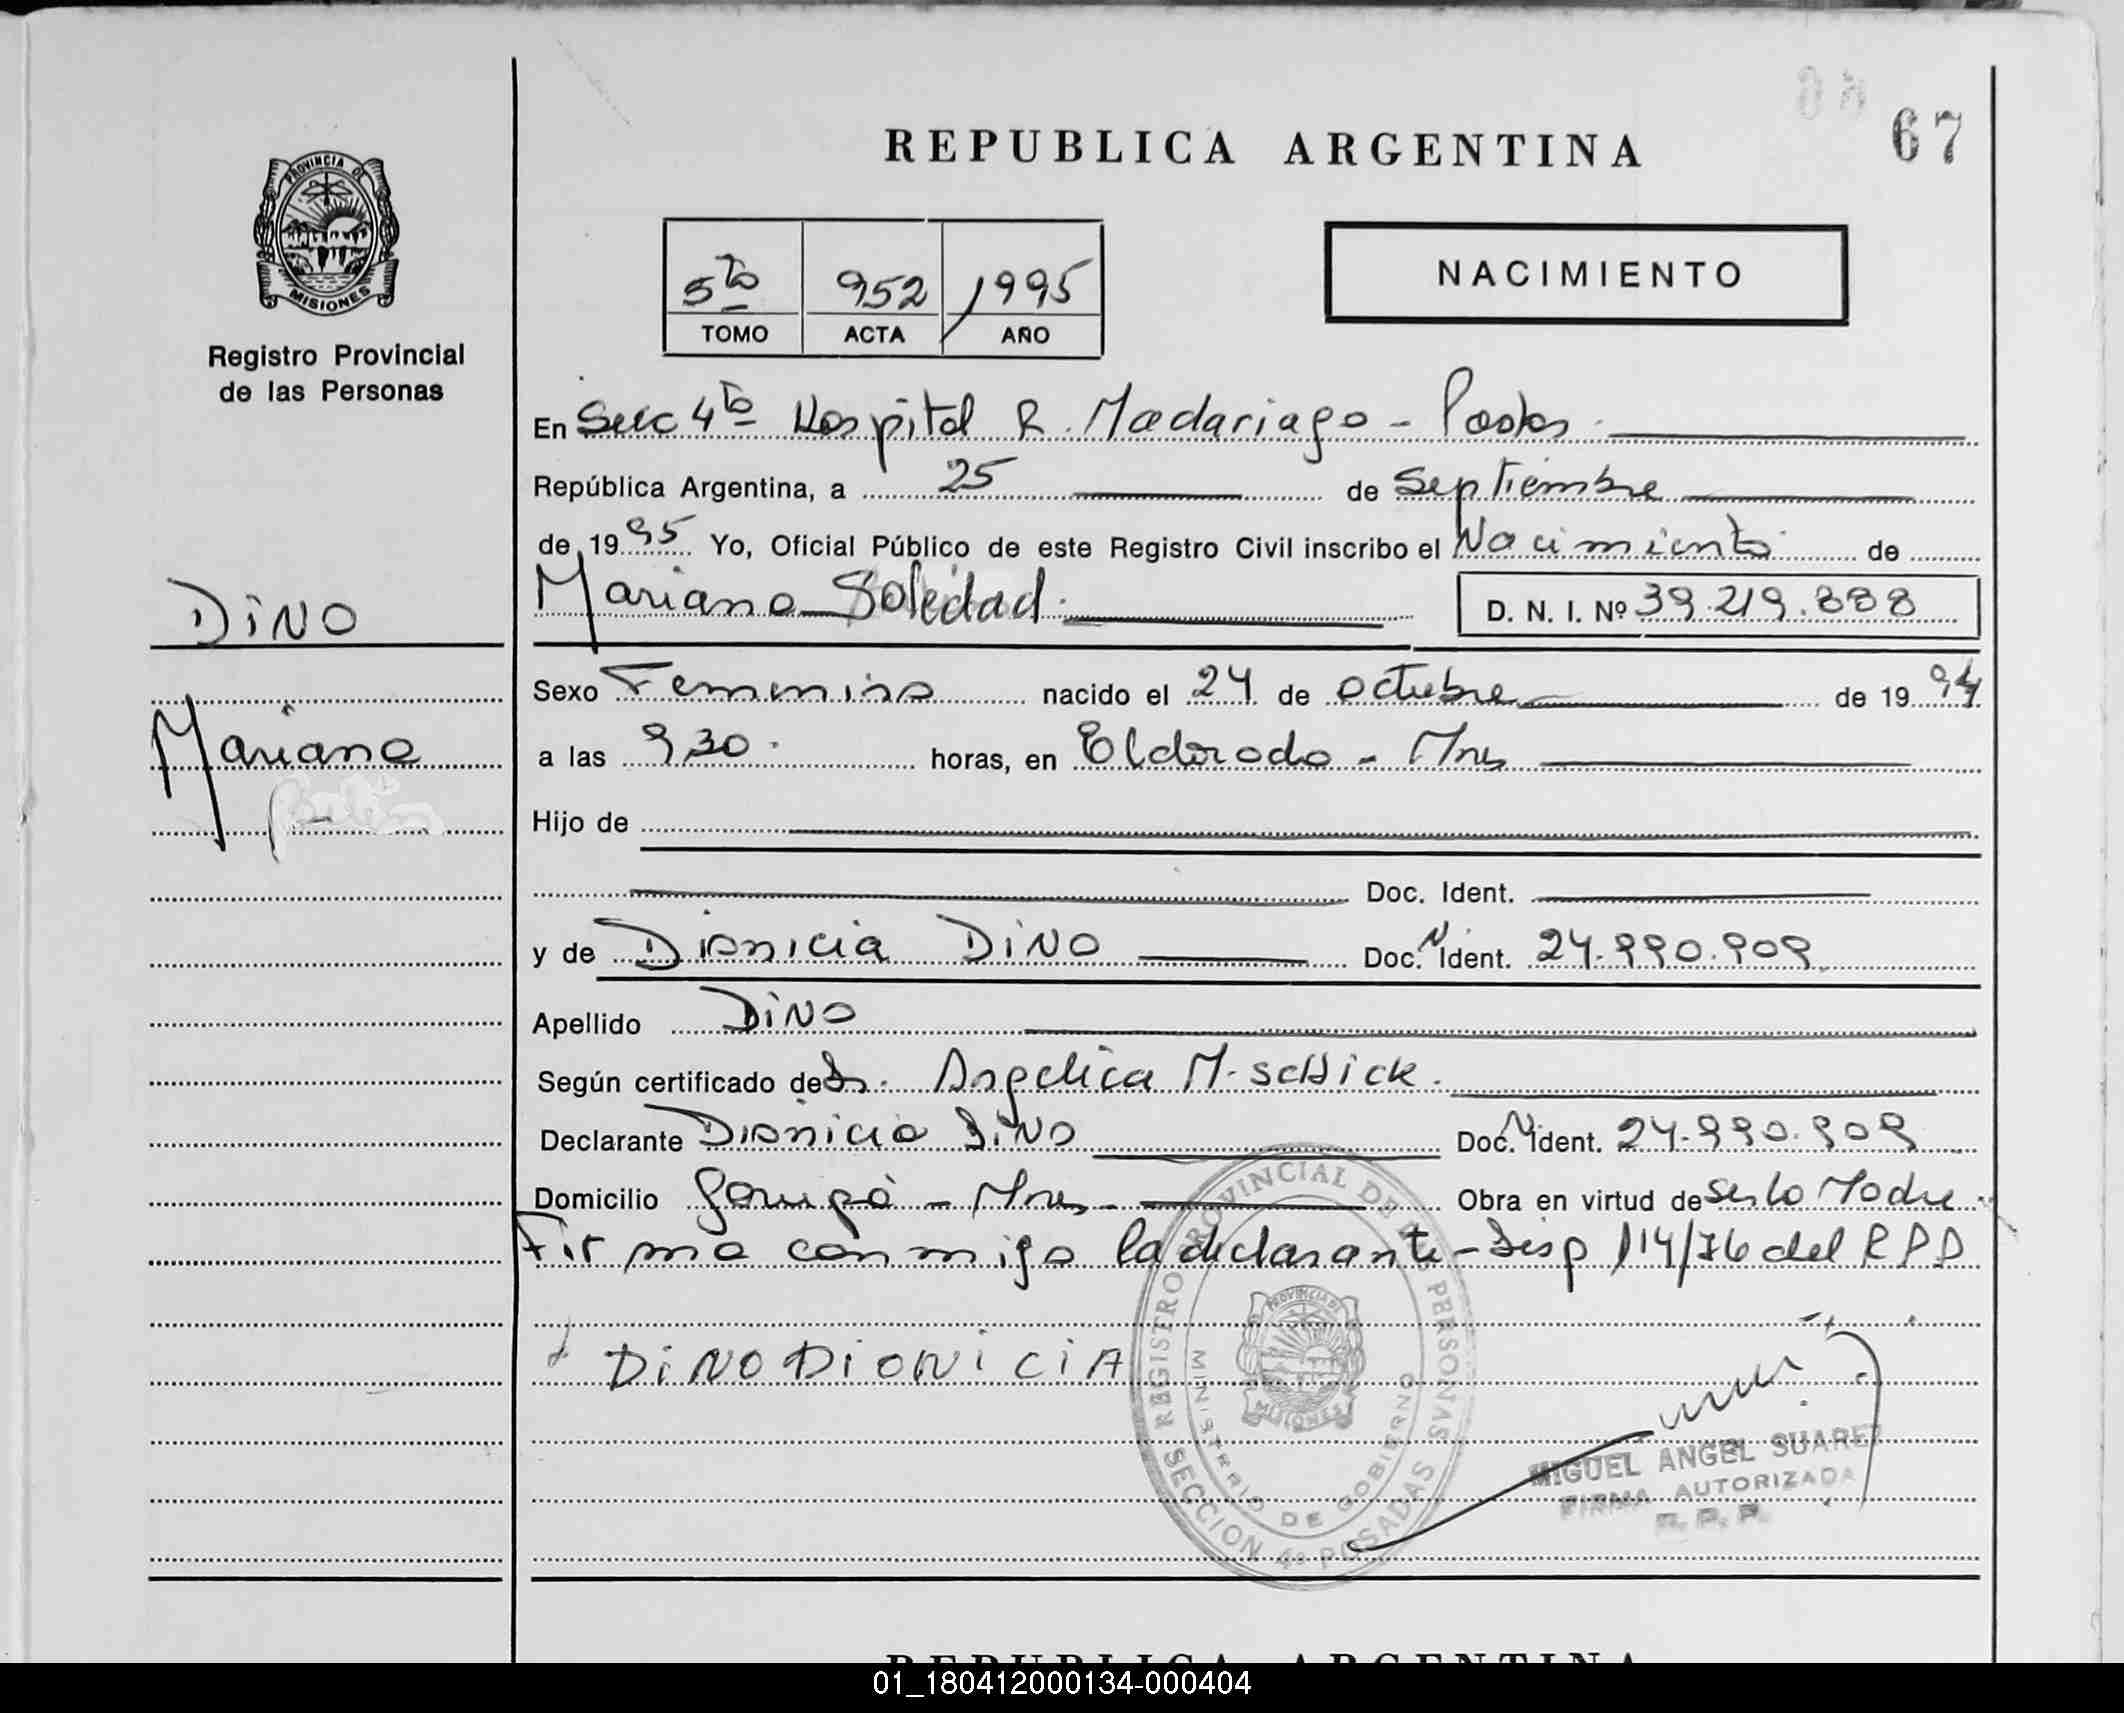 67
REPUBLICA ARGENTINA
PROVINCIA DE
MISIONES
Registro Provincial
de las Personas
5to 952 1995
TOMO ACTA AÑO
NACIMIENTO
En Secc 4ta Hospital R. Madariaga - Posdas
República Argentina, a 25 de Septiembre
de 1995 Yo, Oficial Público de este Registro Civil inscribo el Nacimiento de
Mariana Soledad D. N. I. Nº 39.219.888
DiNO
Mariana
Sexo Femenino nacido el 24 de octubre de 1994
a las 9,30 horas, en Eldorado - Mnes
Hijo de
Doc. Ident.
y de Dionicia DiNO Doc. N. Ident. 24.990.909
Apellido DiNO
Según certificado de Dr. Angelica M.
Declarante Dionicia DiNO Doc. N. Ident. 24.990.909
Domicilio Garupá - Mnes Obra en virtud de ser la Madre
Firma conmigo la declarante - Disp 114/76 del R P P
DiNO DiONiCiA
REGISTRO PROVINCIAL DE LAS PERSONAS
MINISTERIO DE GOBIERNO
PROVINCIA DE
MISIONES
SECCION 4º POSADAS
MIGUEL ANGEL SUAREZ
FIRMA AUTORIZADA
R. P. P.
REPUBLICA ARGENTINA
01_180412000134-000404